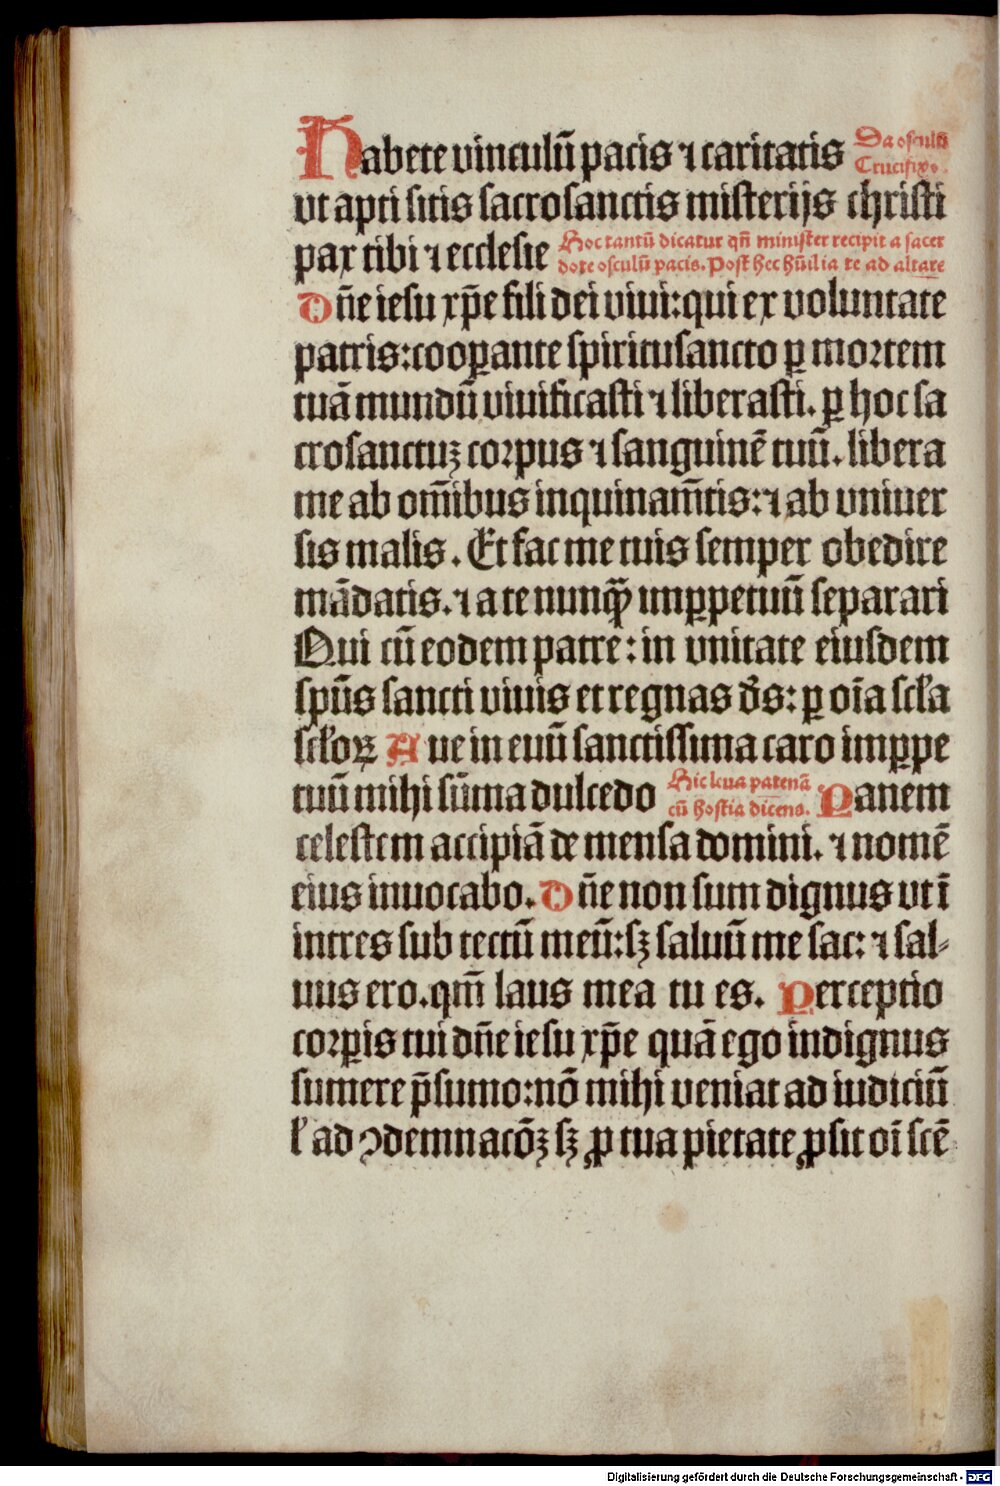 Habete vinculū pacis ⁊ caritatis Da osculū
Crucifixo.
vt apti sitis sacrosanctis misterijs christi
pax tibi ⁊ ecclesie Hoc tantū dicatur qn̄ minister recipit a sacer
dote osculū pacis. Post hec hūilia te ad altare
Dn̄e iesu xp̄e fili dei viui: qui ex voluntate
patris: cooꝑante spiritusancto ꝑ mortem
tuā mundū viuificasti ⁊ liberasti. ꝑ hoc sa
crosanctuꝫ corpus ⁊ sanguinē tuū. libera
me ab om̄ibus inquinam̄tis: ⁊ ab vniuer
sis malis. Et fac me tuis semper obedire
mādatis. ⁊ a te nunqꝫ̄ imꝑpetuū separari
Qui cū eodem patre: in vnitate eiusdem
spūs sancti viuis et regnas d̄s: ꝑ oīa scła
scłoꝝ Aue in euū sanctissima caro imꝑpe
tuū mihi sūma dulcedo Hic leua patenā
cū hostia dicens. Panem
celestem accipiā de mensa domini. ⁊ nomē
eius inuocabo. Dn̄e non sum dignus vt ī
intres sub tectū meū: sꝫ saluū me fac: ⁊ sal-
uus ero. qm̄ laus mea tu es. Perceptio
corꝑis tui dn̄e iesu xp̄e quā ego indignus
sumere p̄sumo: nō mihi veniat ad iudiciū
ł ad ꝯdemnacōꝫ sꝫ ꝓ tua pietate ꝓsit oī scē
Digitalisierung gefördert durch die Deutsche Forschungsgemeinschaft - DFG